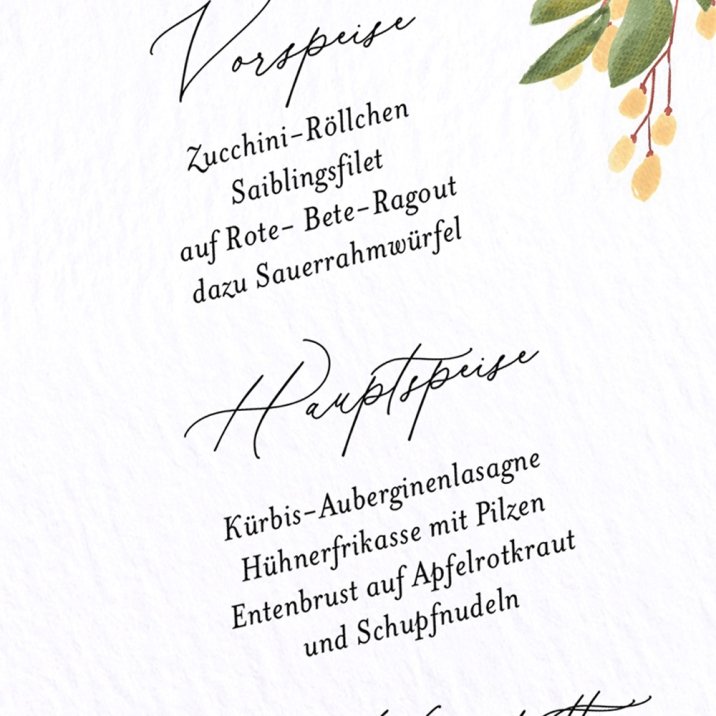 Vorspeise
Zucchini-Röllchen
Saiblingsfilet
auf Rote- Bete-Ragout
dazu Sauerrahmwürfel
Hauptspeise
Kürbis-Auberginenlasagne
Hühnerfrikasse mit Pilzen
Entenbrust auf Apfelrotkraut
und Schupfnudeln